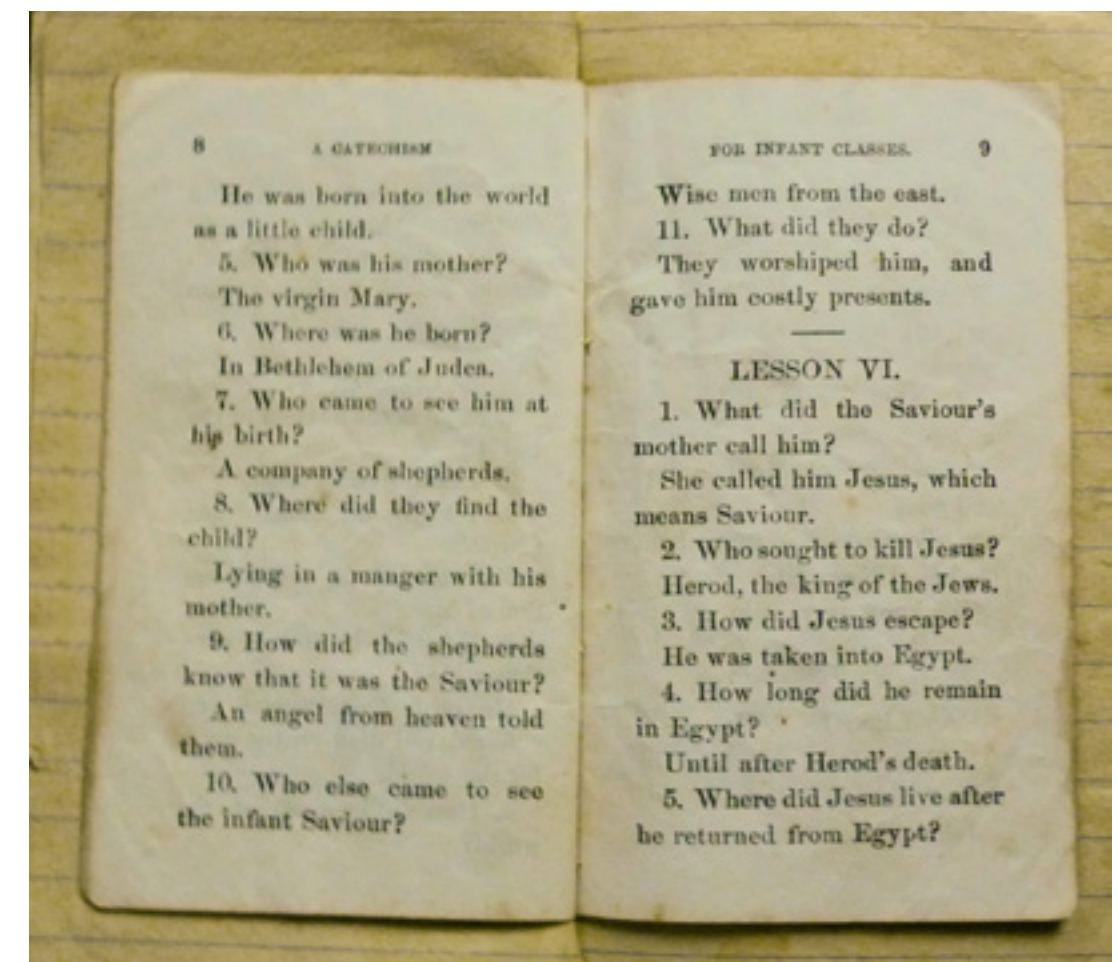 8 A CATECHISM
He was born into the world
as a little child.
5. Who was his mother?
The virgin Mary.
6. Where was he born?
In Bethlehem of Judea.
7. Who came to see him at
his birth?
A company of shepherds.
8. Where did they find the
child?
Lying in a manger with his
mother.
9. How did the shepherds
know that it was the Saviour?
An angel from heaven told
them.
10. Who else came to see
the infant Saviour?
FOR INFANT CLASSES. 9
Wise men from the east.
11. What did they do?
They worshiped him, and
gave him costly presents.
LESSON VI.
1. What did the Saviour's
mother call him?
She called him Jesus, which
means Saviour.
2. Who sought to kill Jesus?
Herod, the king of the Jews.
3. How did Jesus escape?
He was taken into Egypt.
4. How long did he remain
in Egypt?
Until after Herod's death.
5. Where did Jesus live after
he returned from Egypt?